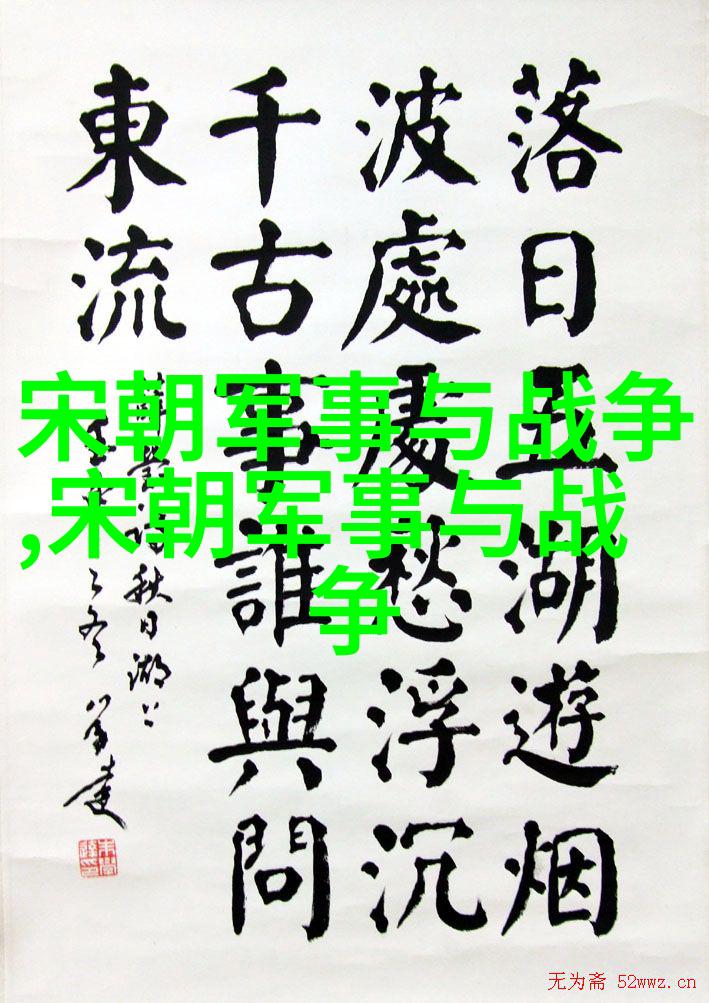 落日五湖遊烟
波處處愁浮沉
千古事誰與問
東流
薛瑩詩秋日湖上
之冬
宋朝军事与战争
,宋朝军事与战
争
无为斋 52wwz.cn